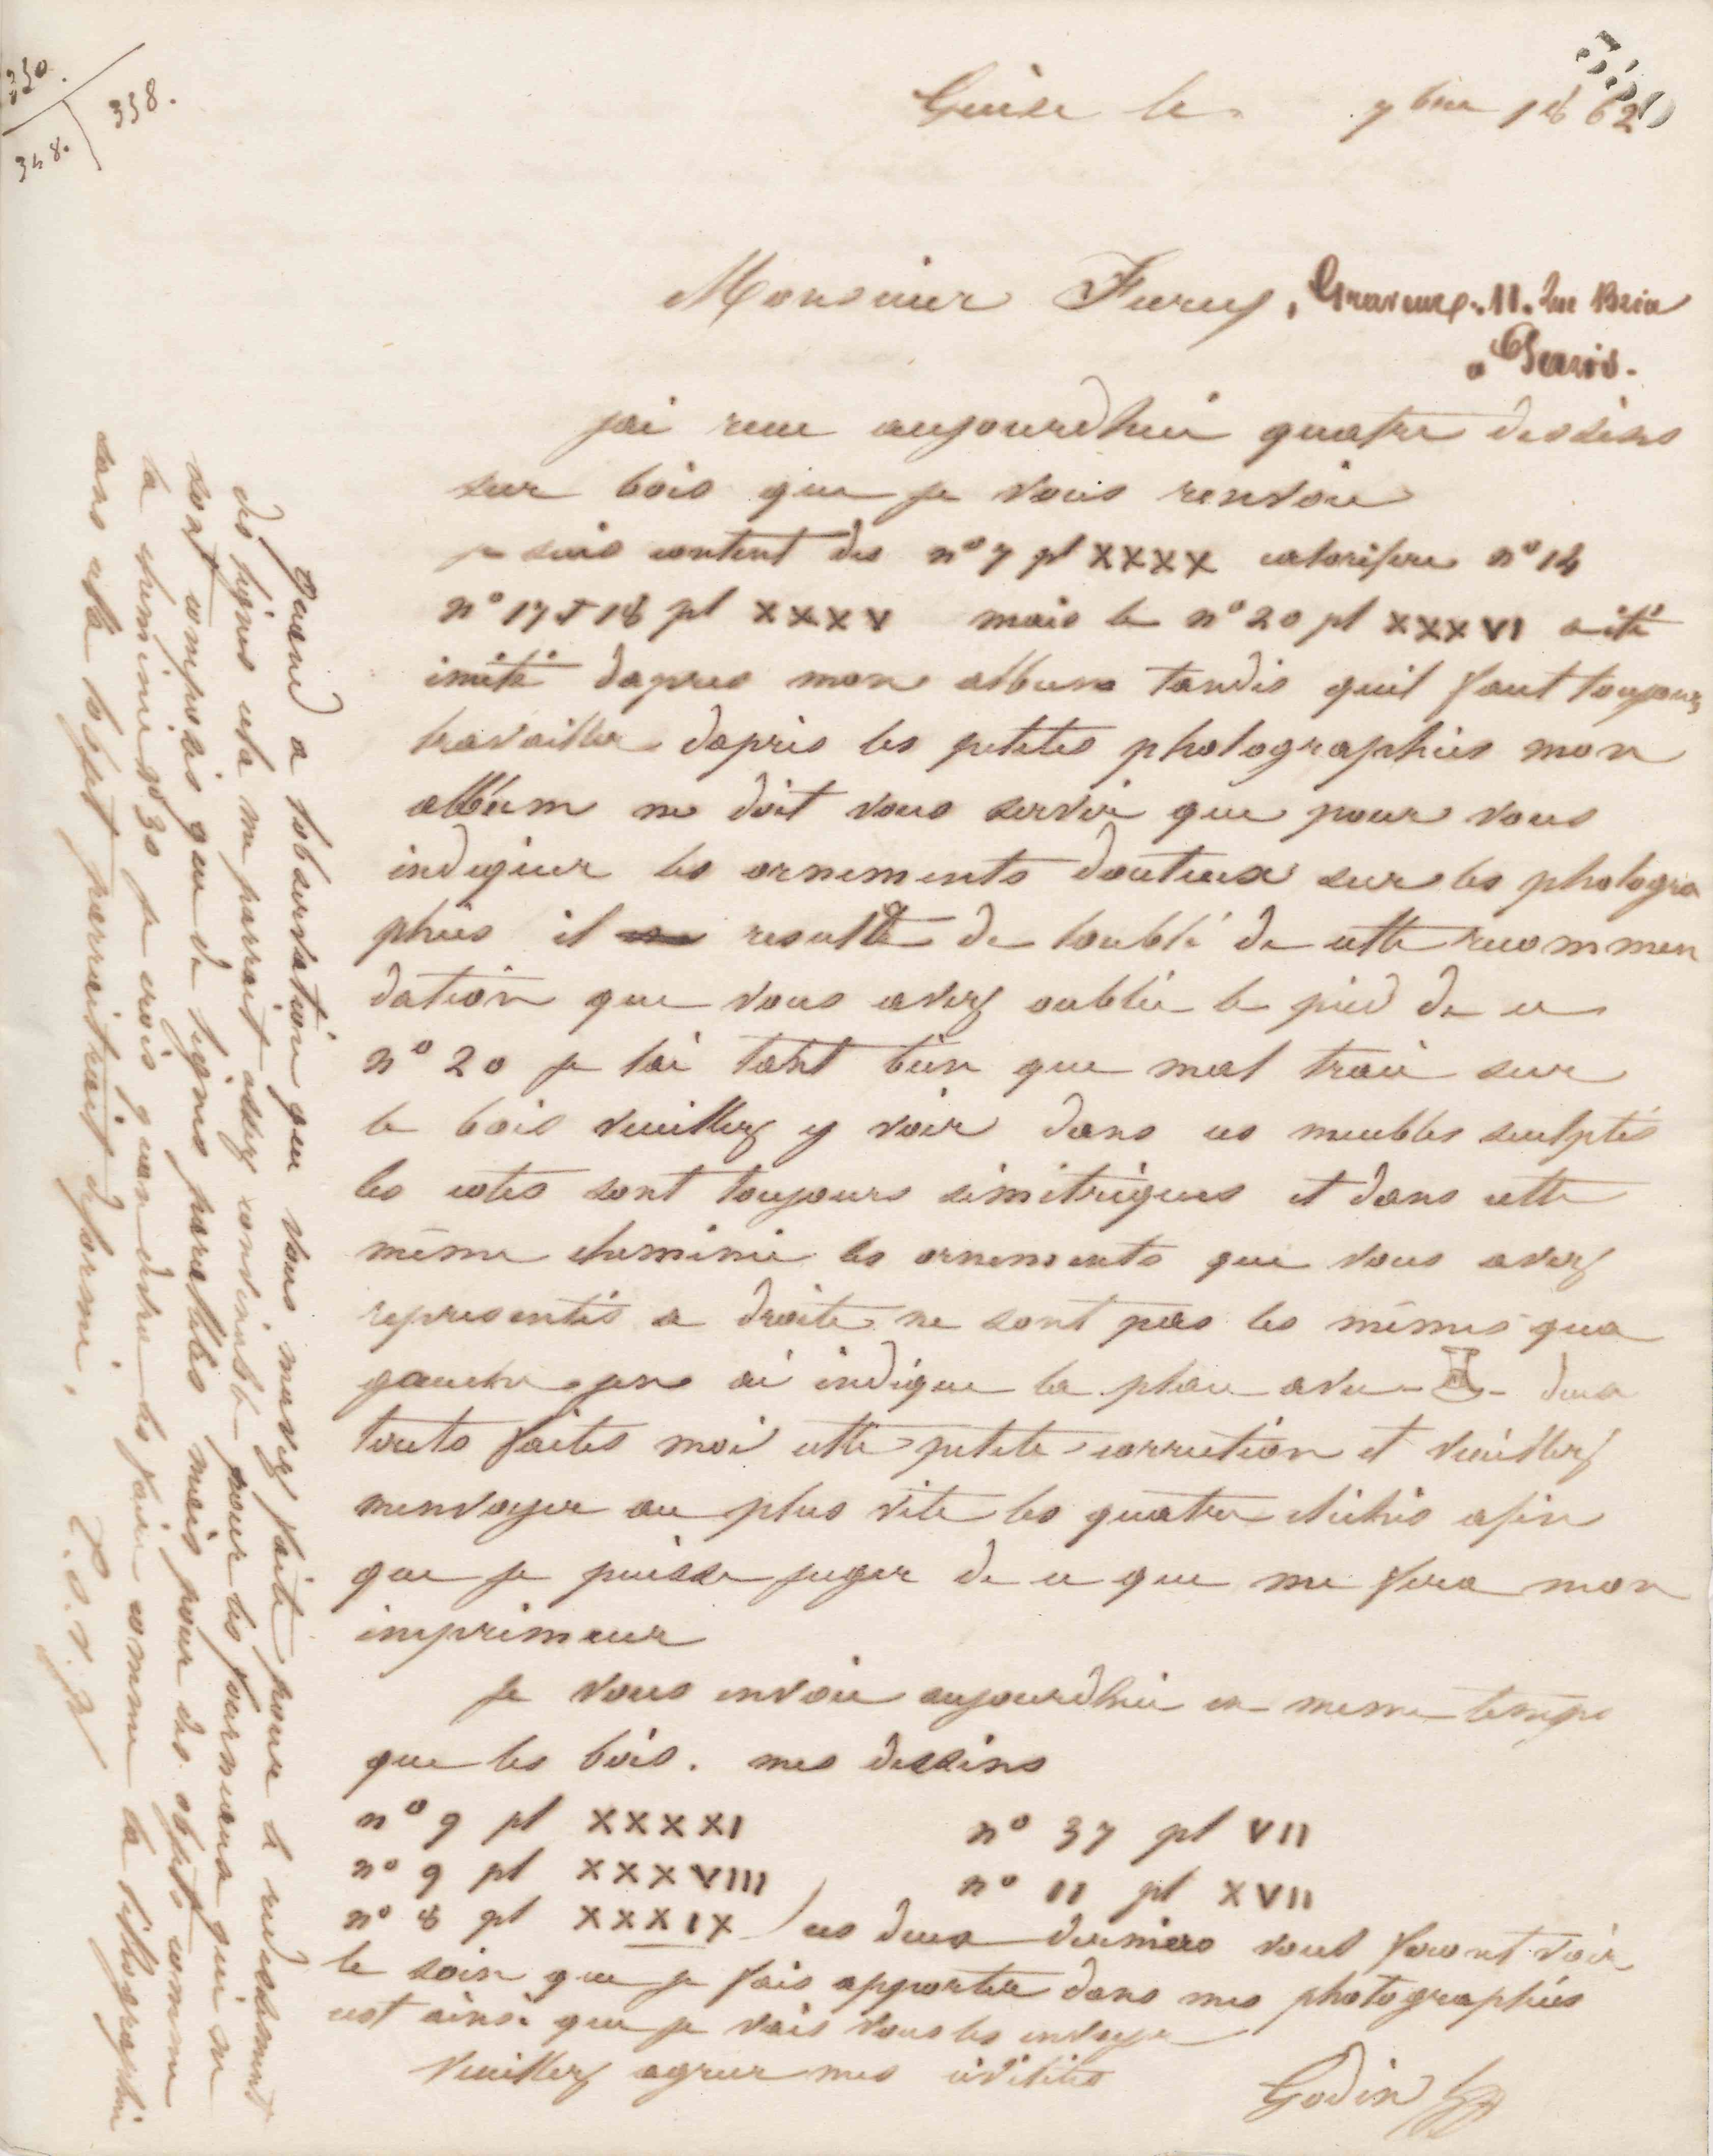 350.
338.
348.
350
Guise le 7bre 1862
Monsieur Furey, Graveur, 11. Rue Bréa
a Paris.
jai recu aujourdhui quatre dessins
sur bois que je vous renvoie
je suis content des n° 7 pl XXXX calorifere n° 14
n° 17 & 18 pl XXXV mais le n° 20 pl XXXVI a été
imité dapres mon album tandis quil faut toujours
travailler dapres les petites photographies mon
album ne doit vous servir que pour vous
indiquer les ornements douteux sur les photogra
phies il resulte de loubli de cette recommen
dation que vous avez oublié le pied de ce
n° 20 je lai tant bien que mal tracé sur
le bois veuillez y voir dans ces meubles sculptés
les cotés sont toujours simitriques et dans cette
même cheminée les ornements que vous avez
representés a droite ne sont pas les mêmes qua
gauche jen ai indique la place avec
toute faites moi cette petite correction et veuillez
menvoyer au plus vite les quatre clichés afin
que je puisse juger de ce que me fera mon
imprimeur
Je vous envoie aujourdhui en meme temps
que les bois. mes dessins
n° 9 pl XXXXI n° 37 pl VII
n° 9 pl XXXVIII n° 11 pl XVII
n° 8 pl XXXIX ces deux derniers vous feront voir
le soin que je fais apporter dans mes photographies
cest ainsi que je vais vous les envoyer
Veuillez agreer mes civilités
Godin
quand a lobservation que vous mavez faite pour le redressement
des lignes cela me parrait assez convenable pour les fourneaux qui ne
sont composés que de lignes paralleles mais pour des objets comme
la cheminée n° 30 je crois quon devra les faire comme la lithographie
sans cela lobjet parraitrait déformé.
T.S.V.P.